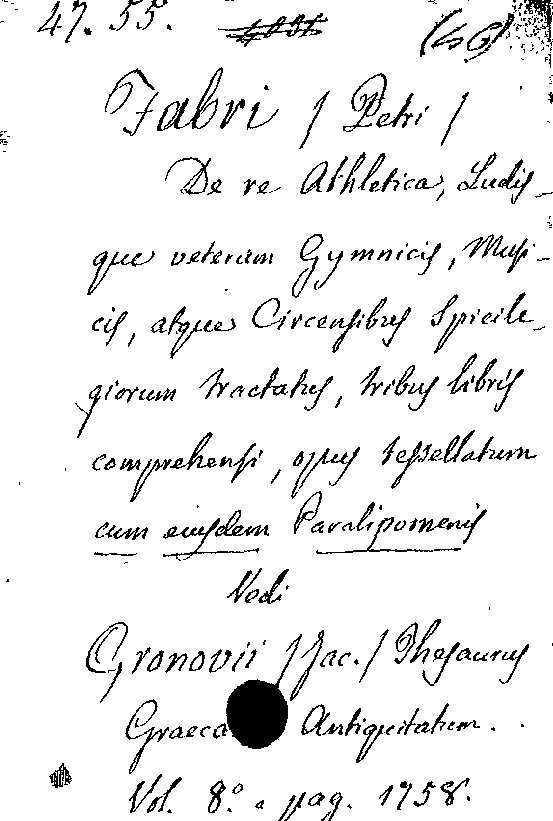 47. 55. (46)
Fabri / Petri /
De re Athletica, Ludis_
que veterum Gymnicis, Musi_
cis, atque Circensibus Spicile_
giorum tractatus, tribus libris
comprehensi, opus tessellatum
cum eiusdem Paralipomenis
Vedi
Gronovii / Jac. / Thesaurus
Graeca Antiquitatum.
Vol. 8.º a pag. 1758.